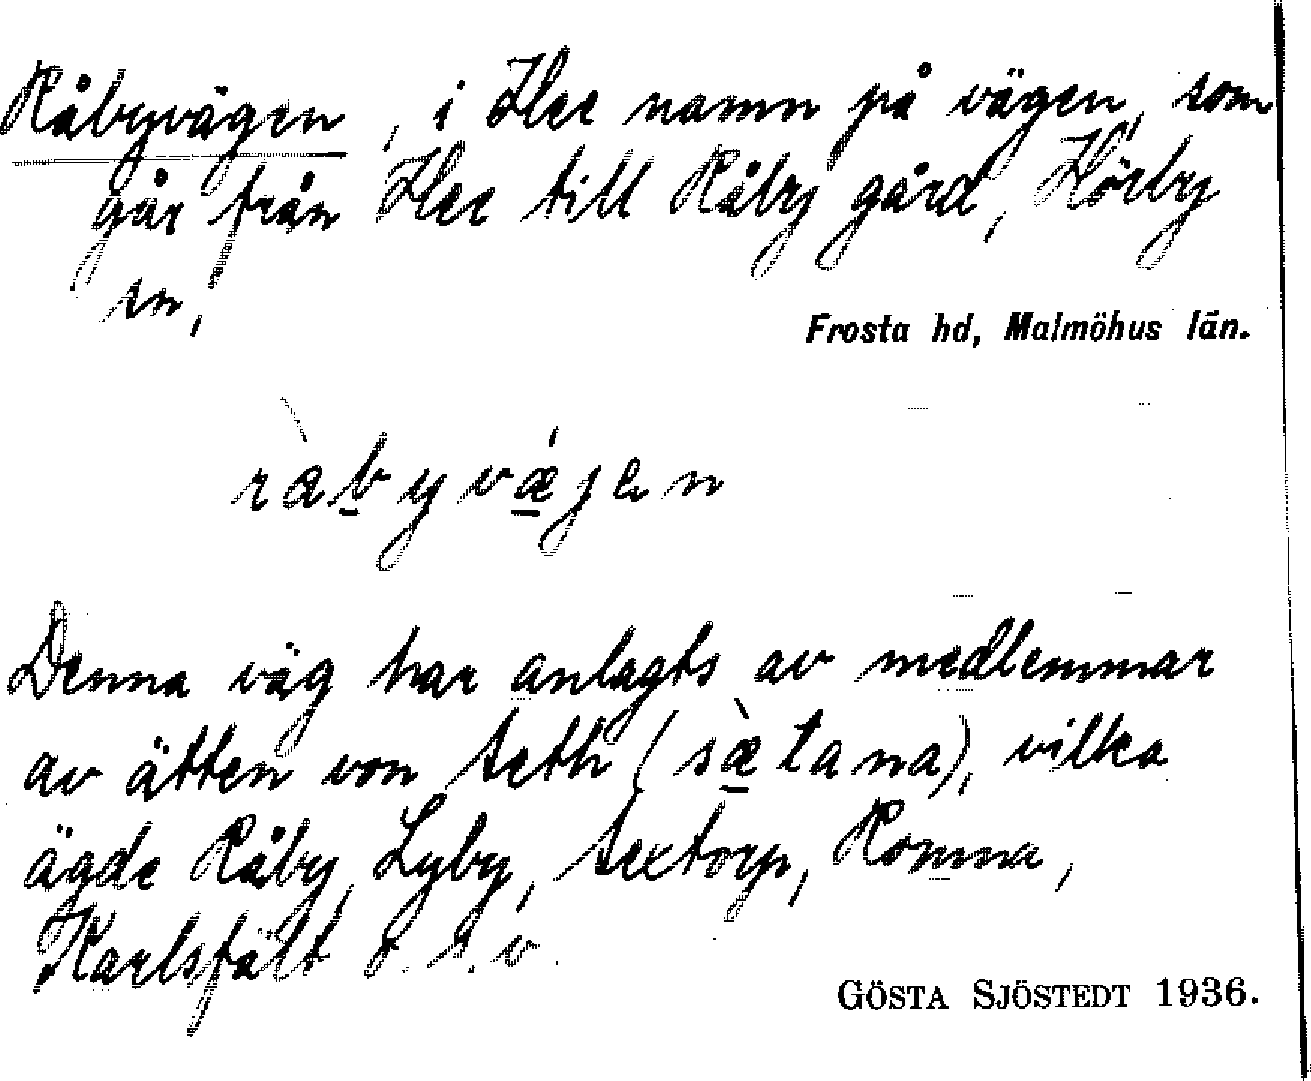 Råbyvägen, i Hee namn på vägen, som
går från Hee till Råby gård, Hörby
sn,
Frosta hd, Malmöhus län.
ràbyvǽjen
Denna väg har anlagts av medlemmar
av ätten von Seth (sæ̀tana), vilka
ägde Råby, Lyby, Sextorp, Romma,
Karlsfält o.s.v.
GÖSTA SJÖSTEDT 1936.